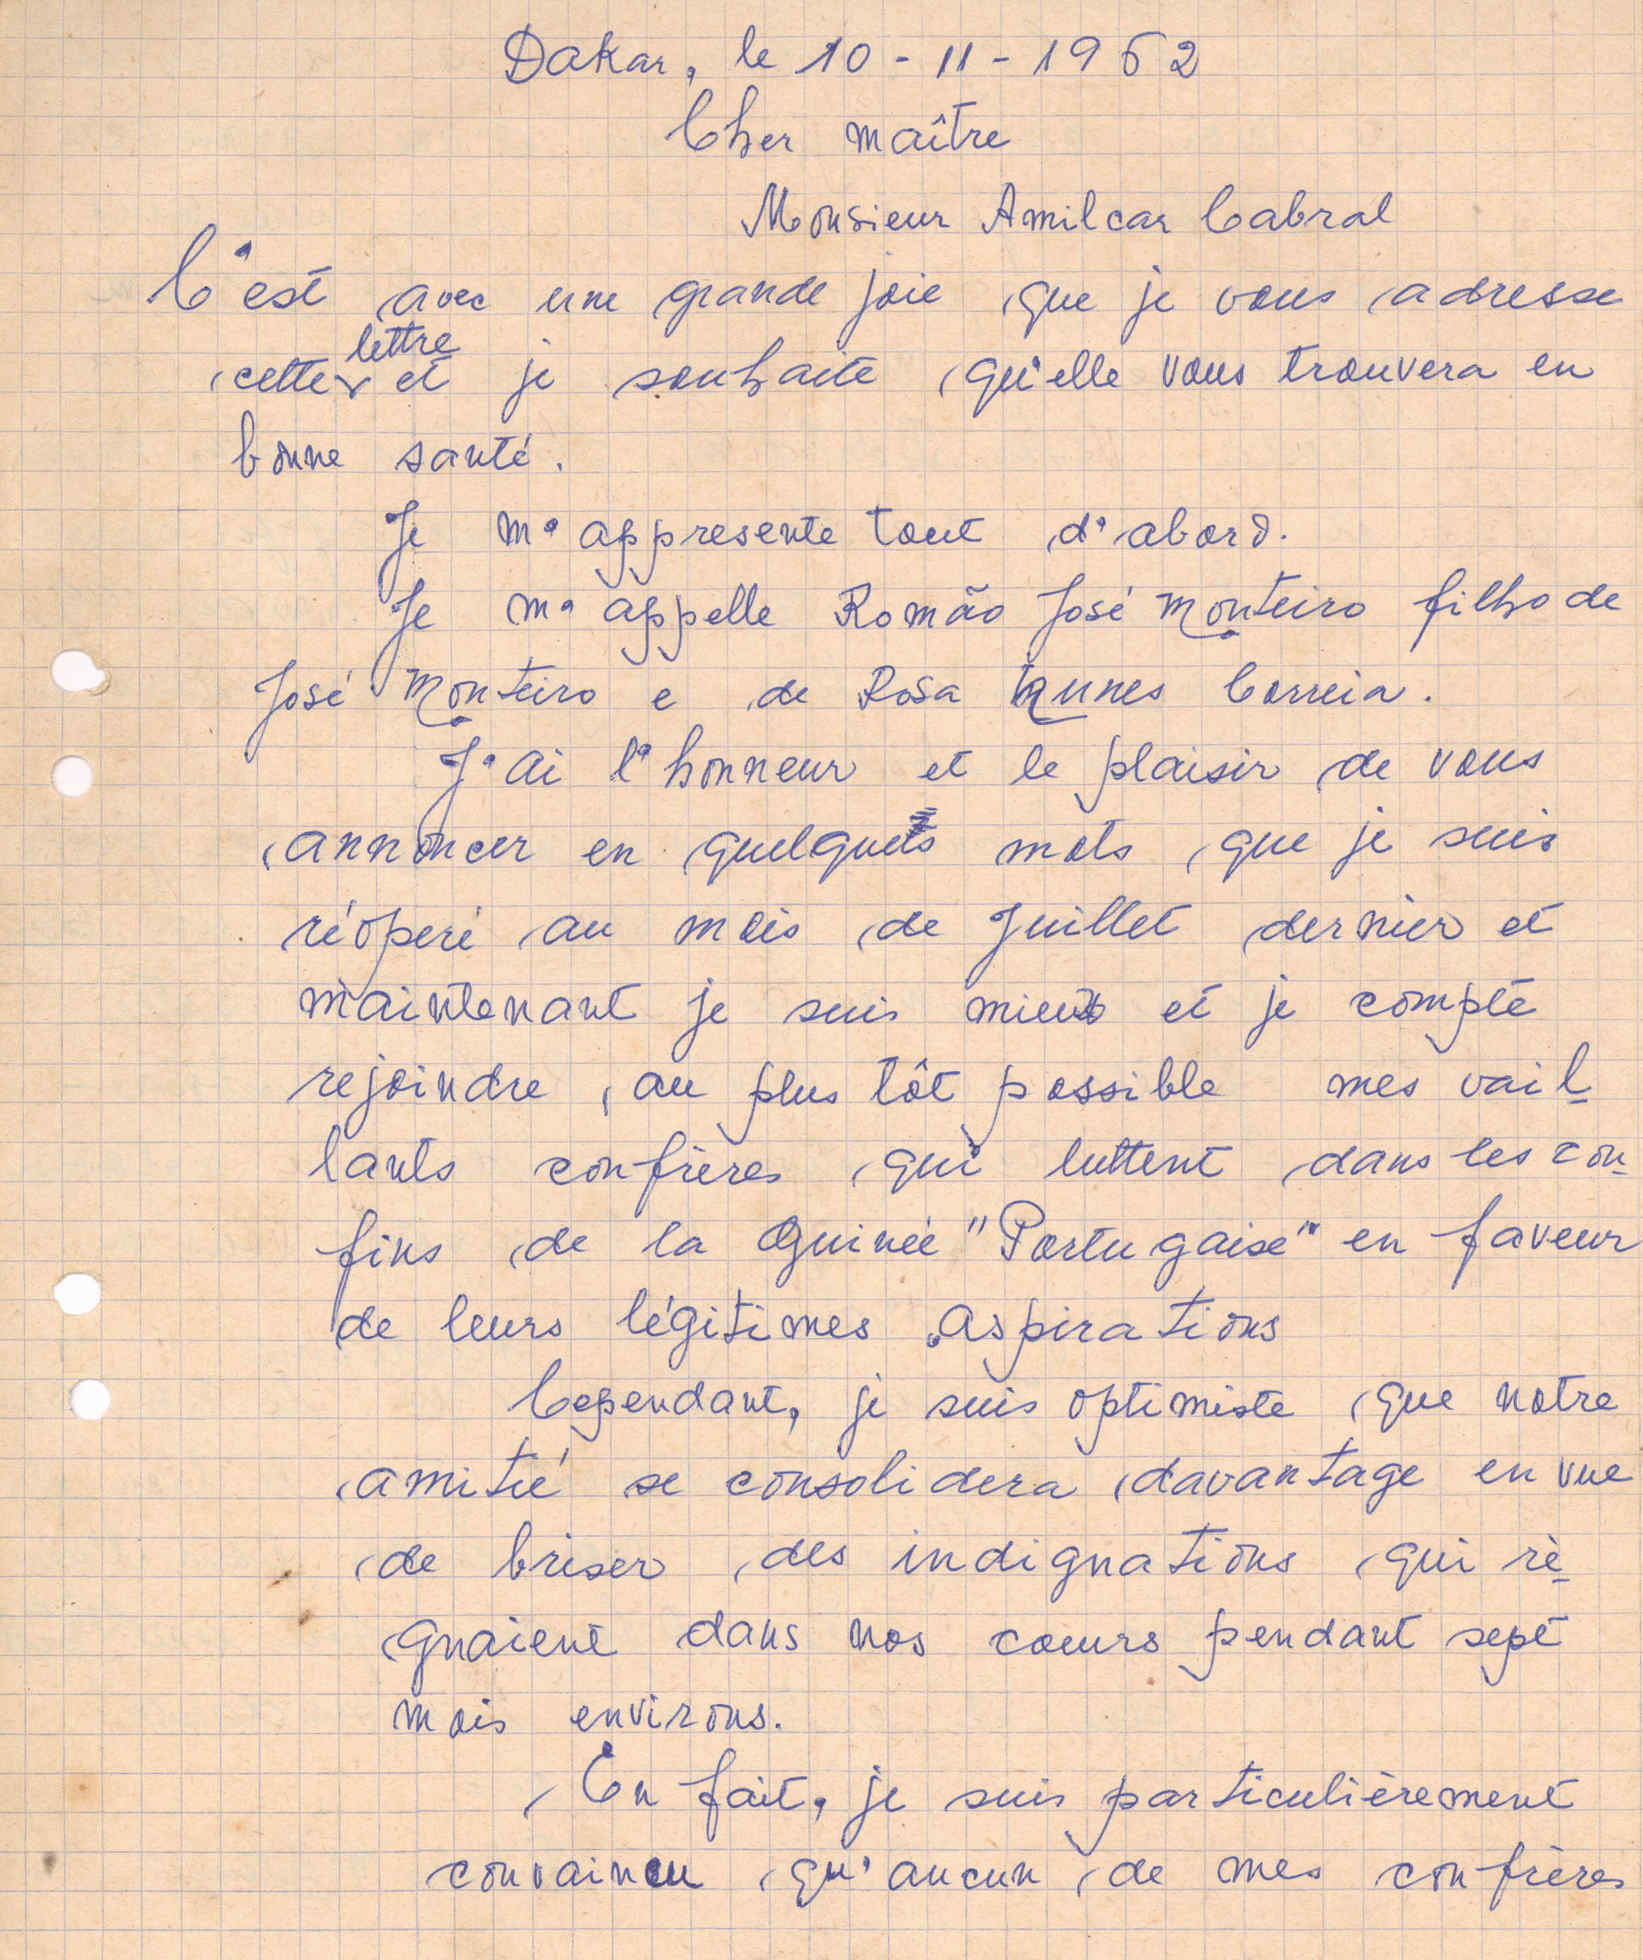 Dakar, le 10-11-1962
Cher maître
Monsieur Amilcar Cabral
C'est avec une grande joie que je vous adresse
lettre
cette et je souhaite qu'elle vous trouvera en
bonne santé.
Je m'appresente tout d'abord.
Je m'appelle Romão José Monteiro filho de
José Monteiro e de Rosa Nunes Correia.
J'ai l'honneur et le plaisir de vous
annoncer en quelques mots que je suis
réoperé au mois de Juillet dernier et
maintenant je suis mieux et je compte
rejoindre au plus tôt possible mes vail-
lants confrères qui luttent dans les con-
fins de la Guinée "Portugaise" en faveur
de leurs légitimes aspirations
Cependant, je suis optimiste que notre
amitié se consolidera davantage en vue
de briser des indignations qui rè-
gnaient dans nos cœurs pendant sept
mois environs.
En fait, je suis particulièrement
convaincu qu'aucun de mes confrères